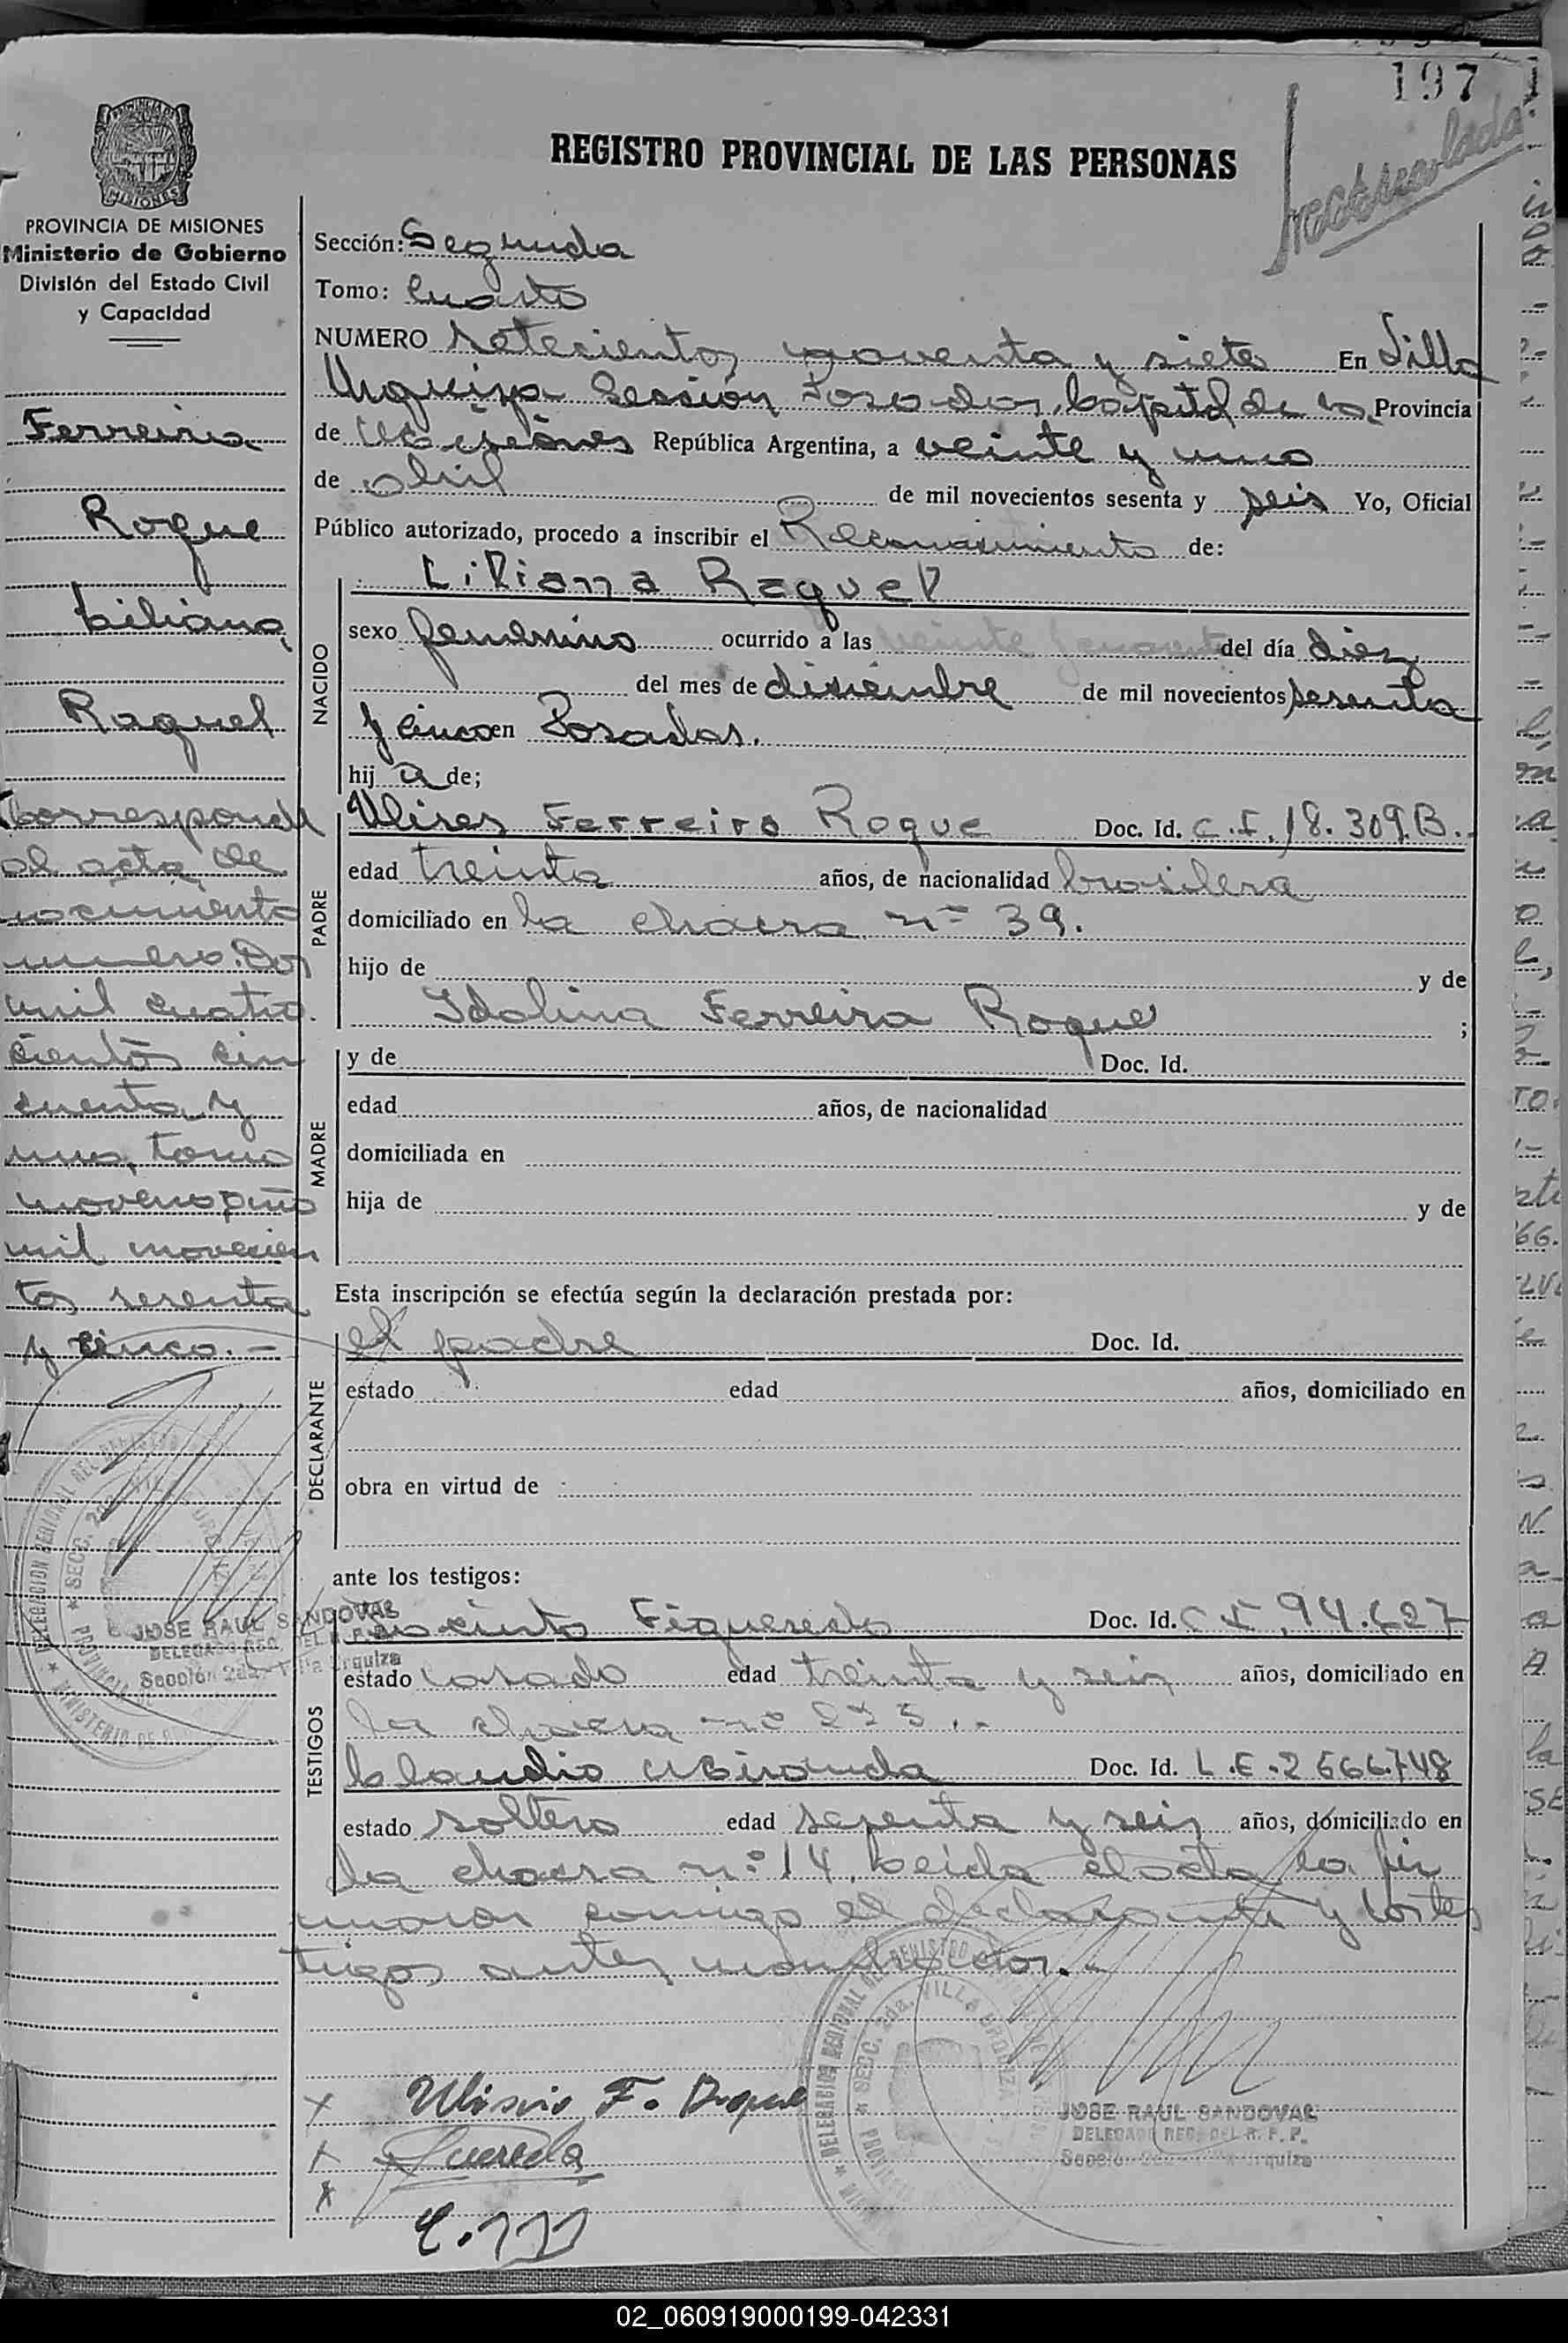 197
Matriculada
REGISTRO PROVINCIAL DE LAS PERSONAS
PROVINCIA DE MISIONES
Ministerio de Gobierno
División del Estado Civil
y Capacidad
Ferreira
Roque
Liliana
Raquel
Corresponde
al acta de
nacimiento
numero Dos
mil cuatro
cientos cin
cuenta y
uno, tomo
noveno año
mil novecien
tos sesenta
y cinco.-
Sección: Segunda
Tomo: Cuarto
NUMERO setecientos noventa y siete En Villa
Urquiza Sección Posadas, Capital de la Provincia
de Misiones República Argentina, a veinte y uno
de abril de mil novecientos sesenta y seis Yo, Oficial
Público autorizado, procedo a inscribir el Reconocimiento de:
NACIDO
Liliana Raquel
sexo femenino ocurrido a las veinte del día diez
del mes de diciembre de mil novecientos sesenta
y cinco en Posadas.
hij a de;
PADRE
Ulises Ferreira Roque Doc. Id. C.I. 18.309.B.
edad treinta años, de nacionalidad brasilera
domiciliado en la chacra nº 39.
hijo de y de
Idalina Ferreira Roque ;
MADRE
y de Doc. Id.
edad años, de nacionalidad
domiciliada en
hija de y de
Esta inscripción se efectúa según la declaración prestada por:
DECLARANTE
el padre Doc. Id.
estado edad años, domiciliado en
obra en virtud de
ante los testigos:
TESTIGOS
Jacinto Figueredo Doc. Id. C I. 94.627
estado casado edad treinta y seis años, domiciliado en
la chacra nº 275.-
Claudio Miranda Doc. Id. L.E.2666.748
estado soltero edad sesenta y seis años, domiciliado en
la chacra nº 14. Leida el acta, la fir
maron conmigo el declarante y los tes
tigos antes nombrados.-
JOSE RAUL SANDOVAL
DELEGADO REG. DEL R. P. P.
Sección 2da. Villa Urquiza
DELEGACION REGIONAL DEL REGISTRO
SECC. 2da. VILLA URQUIZA
Ulisio F. Roque
JOSE RAUL SANDOVAL
DELEGADO REG. DEL R. P. P.
Sección 2da. Villa Urquiza
02_060919000199-042331